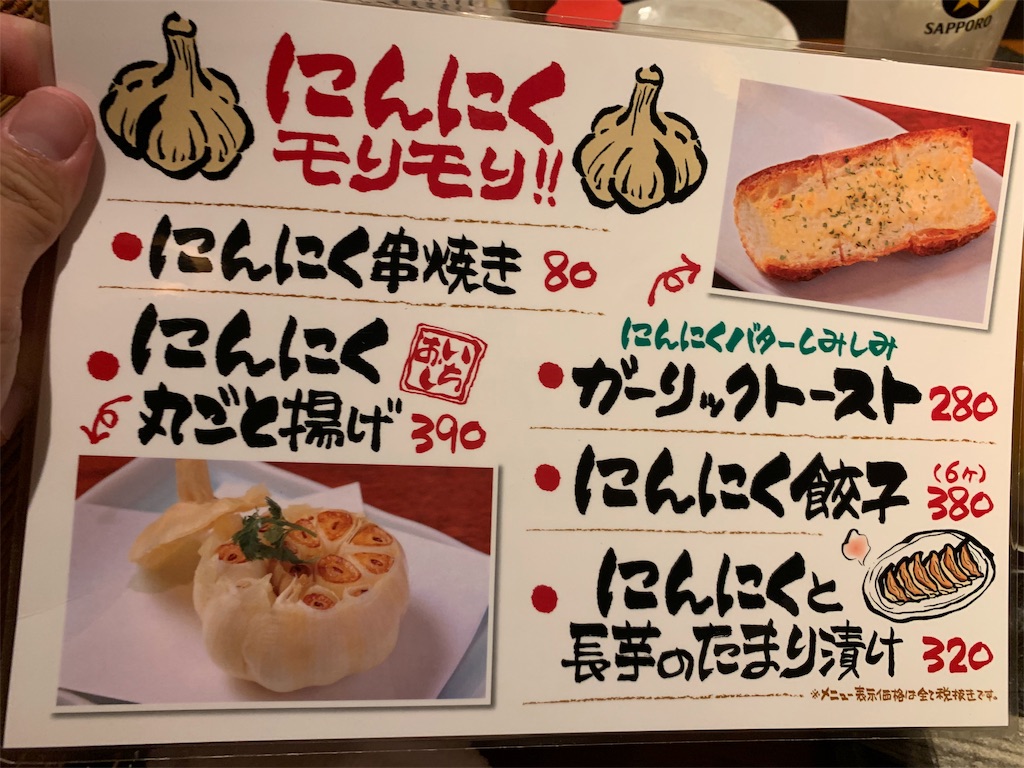 SAPPORO
にんにく
モリモリ!!
にんにく串焼き 80
にんにく
丸ごと揚げ 390
おいしいち
にんにくバターしみしみ
ガーリックトースト 280
にんにく餃子 (6ヶ) 380
にんにくと
長芋のたまり漬け 320
※メニュー表示価格は全て税抜きです。